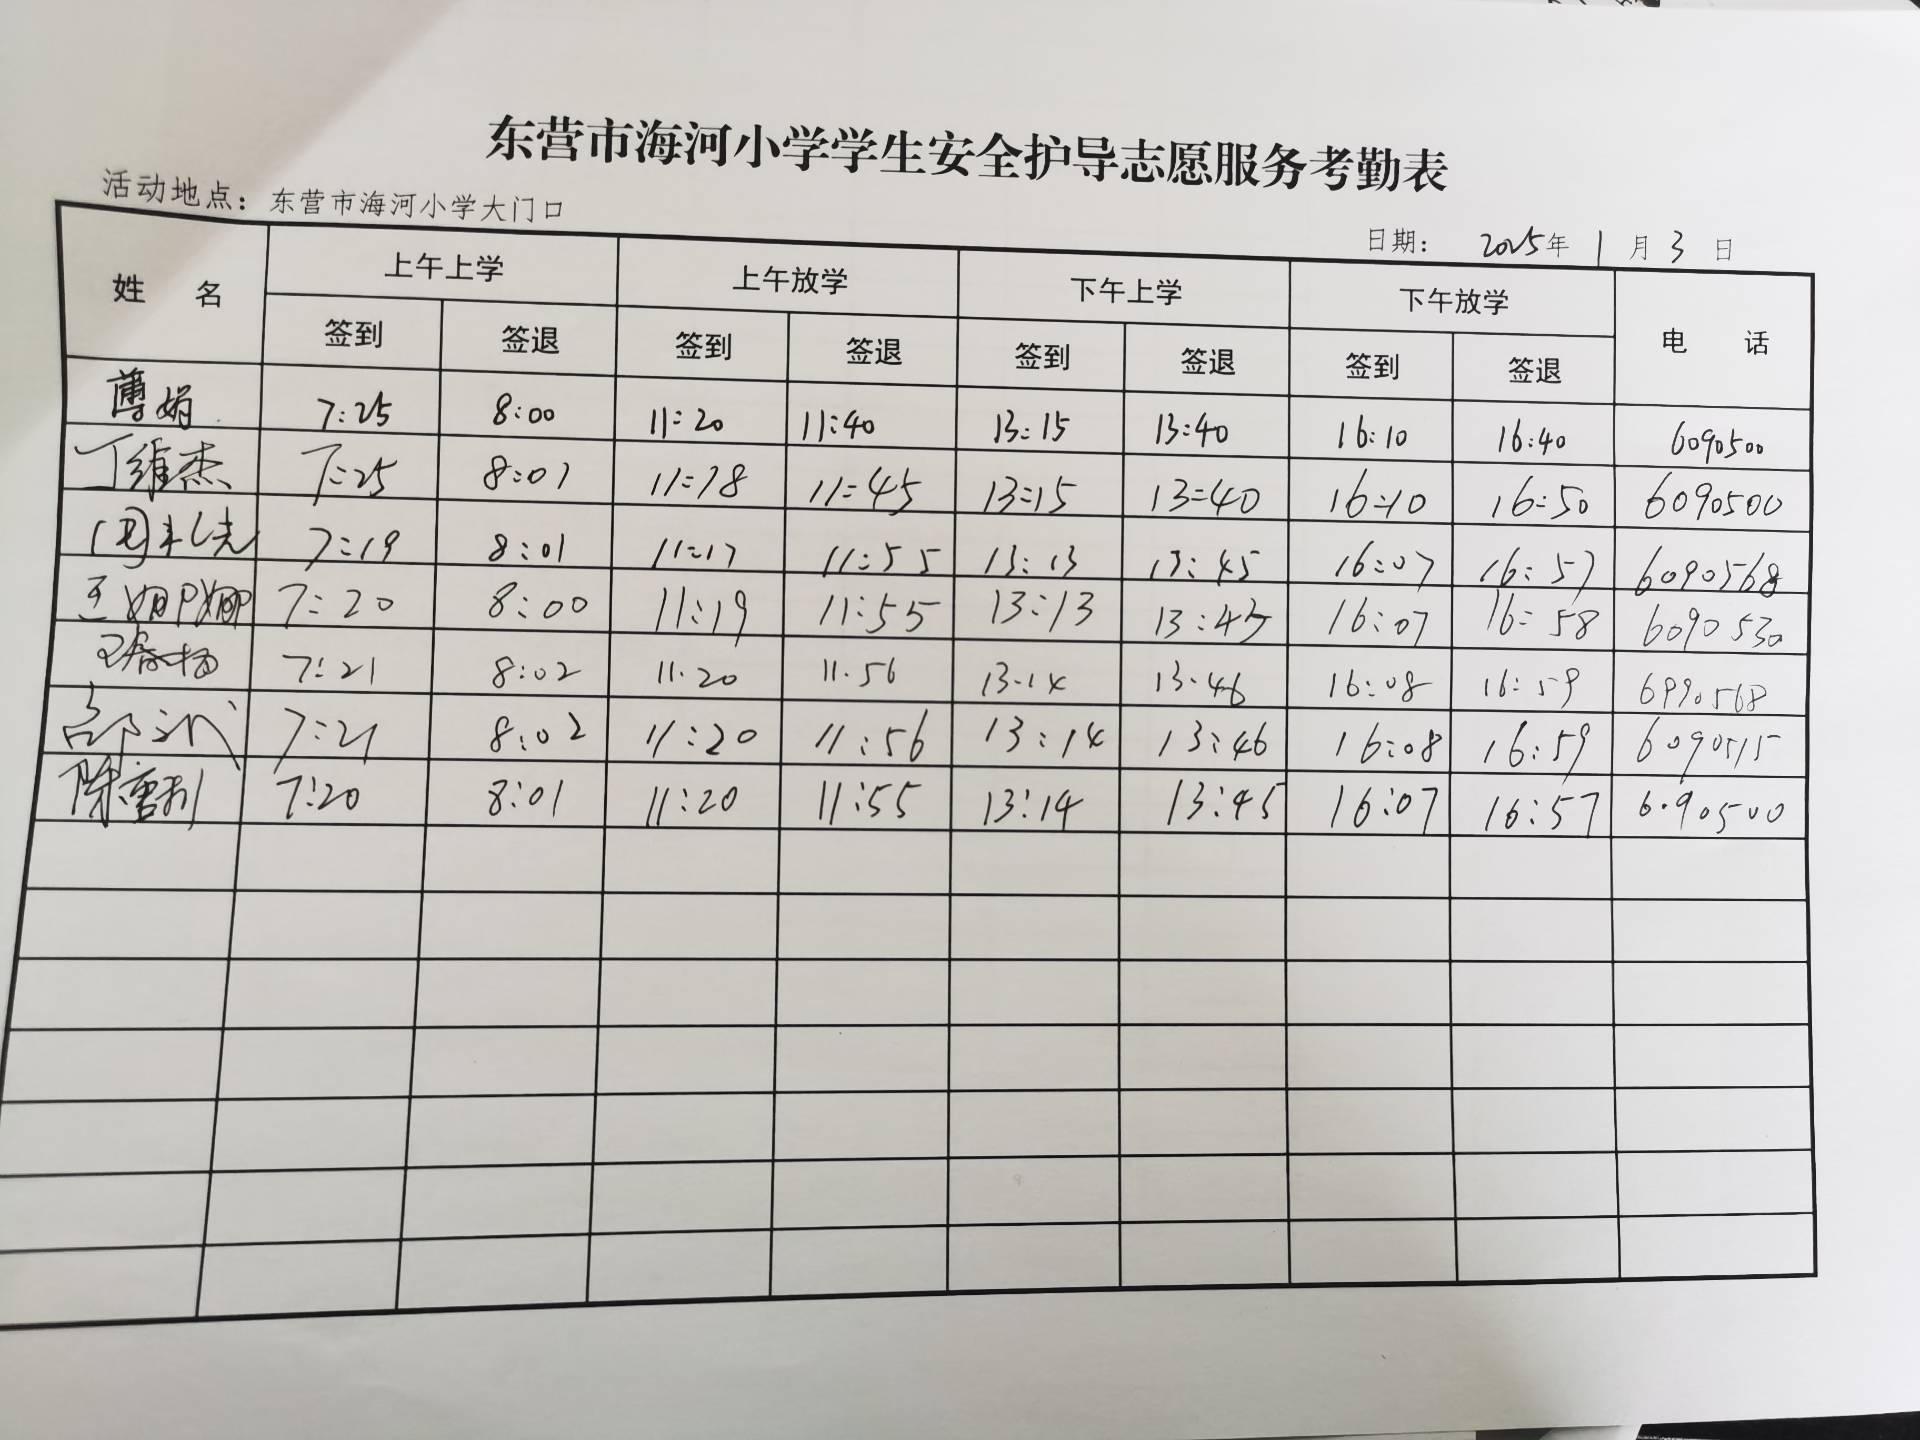 东营市海河小学学生安全护导志愿服务考勤表
活动地点：东营市海河小学大门口
日期： 2025年 1 月 3 日
姓 名 上午上学 上午放学 下午上学 下午放学 电 话
签到 签退 签到 签退 签到 签退 签到 签退
薄娟 7:25 8:00 11:20 11:40 13:15 13:40 16:10 16:40 6090500
丁维杰 7:25 8:01 11:18 11:45 13:15 13:40 16:10 16:50 6090500
7:19 8:01 11:17 11:55 13:13 13:45 16:07 16:57 6090568
王娜娜 7:20 8:00 11:19 11:55 13:13 13:45 16:07 16:58 6090530
7:21 8:02 11.20 11.56 13.14 13.46 16:08 16:59 6090568
7:21 8:02 11:20 11:56 13:14 13:46 16:08 16:59 6090515
7:20 8:01 11:20 11:55 13:14 13:45 16:07 16:57 6090500